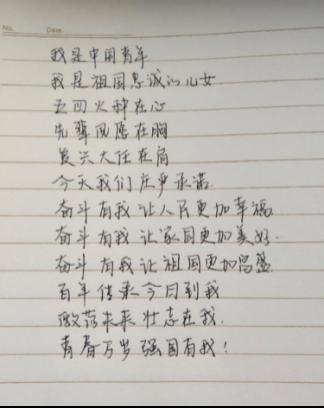 No.
Date.
我是中国青年
我是祖国忠诚的儿女
五四火种在心
先辈夙愿在胸
复兴大任在肩
今天我们庄严承诺.
奋斗有我 让人民更加幸福
奋斗有我 让家国更加美好.
奋斗有我 让祖国更加昌盛
百年传承今日到我
激荡未来 壮志在我.
青春万岁 强国有我!